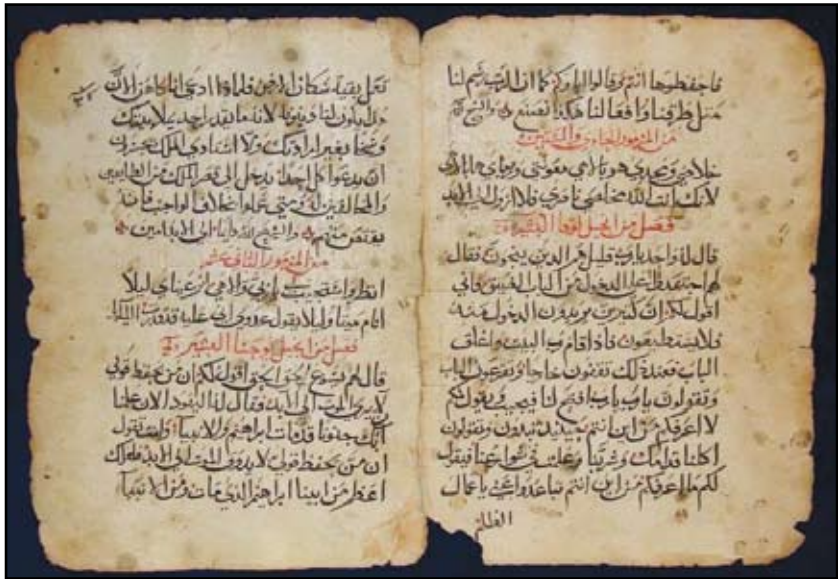 فاحفظوها انتم وكما ان الرب رسم لنا
مثل طرقنا وافعالنا هكذا نصنع
من المزمور الحادي والستين
خلاصي ومجدي هو بالاهي معونتي ورجاي
لانك انت الله مخلصي ناصري فلا ازول الى الابد
فصل من انجيل لوقا البشير
قال له واحد يارب قليل هم الذين ينجون فقال
لهم اجتهدوا على الدخول من الباب الضيق فاني
اقول لكم ان كثيرين يريدون الدخول منه
فلا يستطيعون فاذا قام رب البيت واغلق
الباب فعند ذلك تقفون خارجا وتقرعون الباب
وتقولون يارب يارب افتح لنا فيجيب ويقول لكم
لا اعرفكم من اين انتم حينيذ تبدون وتقولون
اكلنا قدامك وشربنا وعلمت في شوارعنا فيقول
لكم ما اعرفكم من اين انتم تباعدوا عني ياعمال
الظلم
بقية سكان الارض فلماذا ادعى انا كاهن الان
لانه ما يقدر احد
بغير ارادتك ولا الملك
ان يدعوا كل احد يدخل الى قصر الملك من الطايعين
والمخالفين له ومتى عملوا بخلاف الواجب فانه
والى الابد امين
من المزمور الثاني عشر
انظر واستجيب لي ربي والاهي انر عيناي ليلا
انام ميتا وليلا يقول عدوي اني عليه قدرت
فصل من انجيل يوحنا البشير
قال لهم يسوع الحق الحق اقول لكم ان من يحفظ قولي
لا يرى الموت الى الابد فقال له اليهود الان علمنا
انك جنونا قد مات ابراهيم والانبيا وانت تقول
ان من يحفظ قولي لا يذوق الموت الى الابد
اعظم من ابينا ابراهيم الذي مات ومن الانبيا